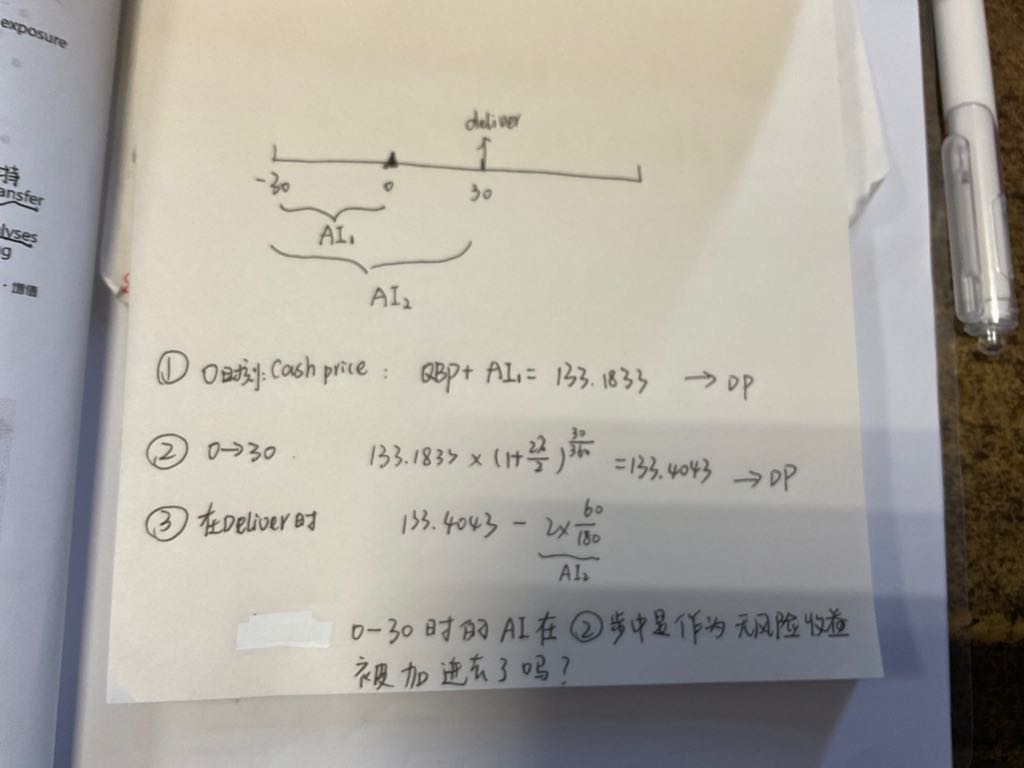 exposure
持
ansfer
lyses
g
·增值
deliver
-30 0 30
AI₁
AI₂
① 0时刻: Cash price: QBP + AI₁ = 133.1833 → DP
② 0→30 133.1833 × (1+2%/2)^(30/360) = 133.4043 → DP
③ 在Deliver时 133.4043 - 2×60/180
AI₂
0-30时的AI在②步中是作为无风险收益
被加进去了吗?